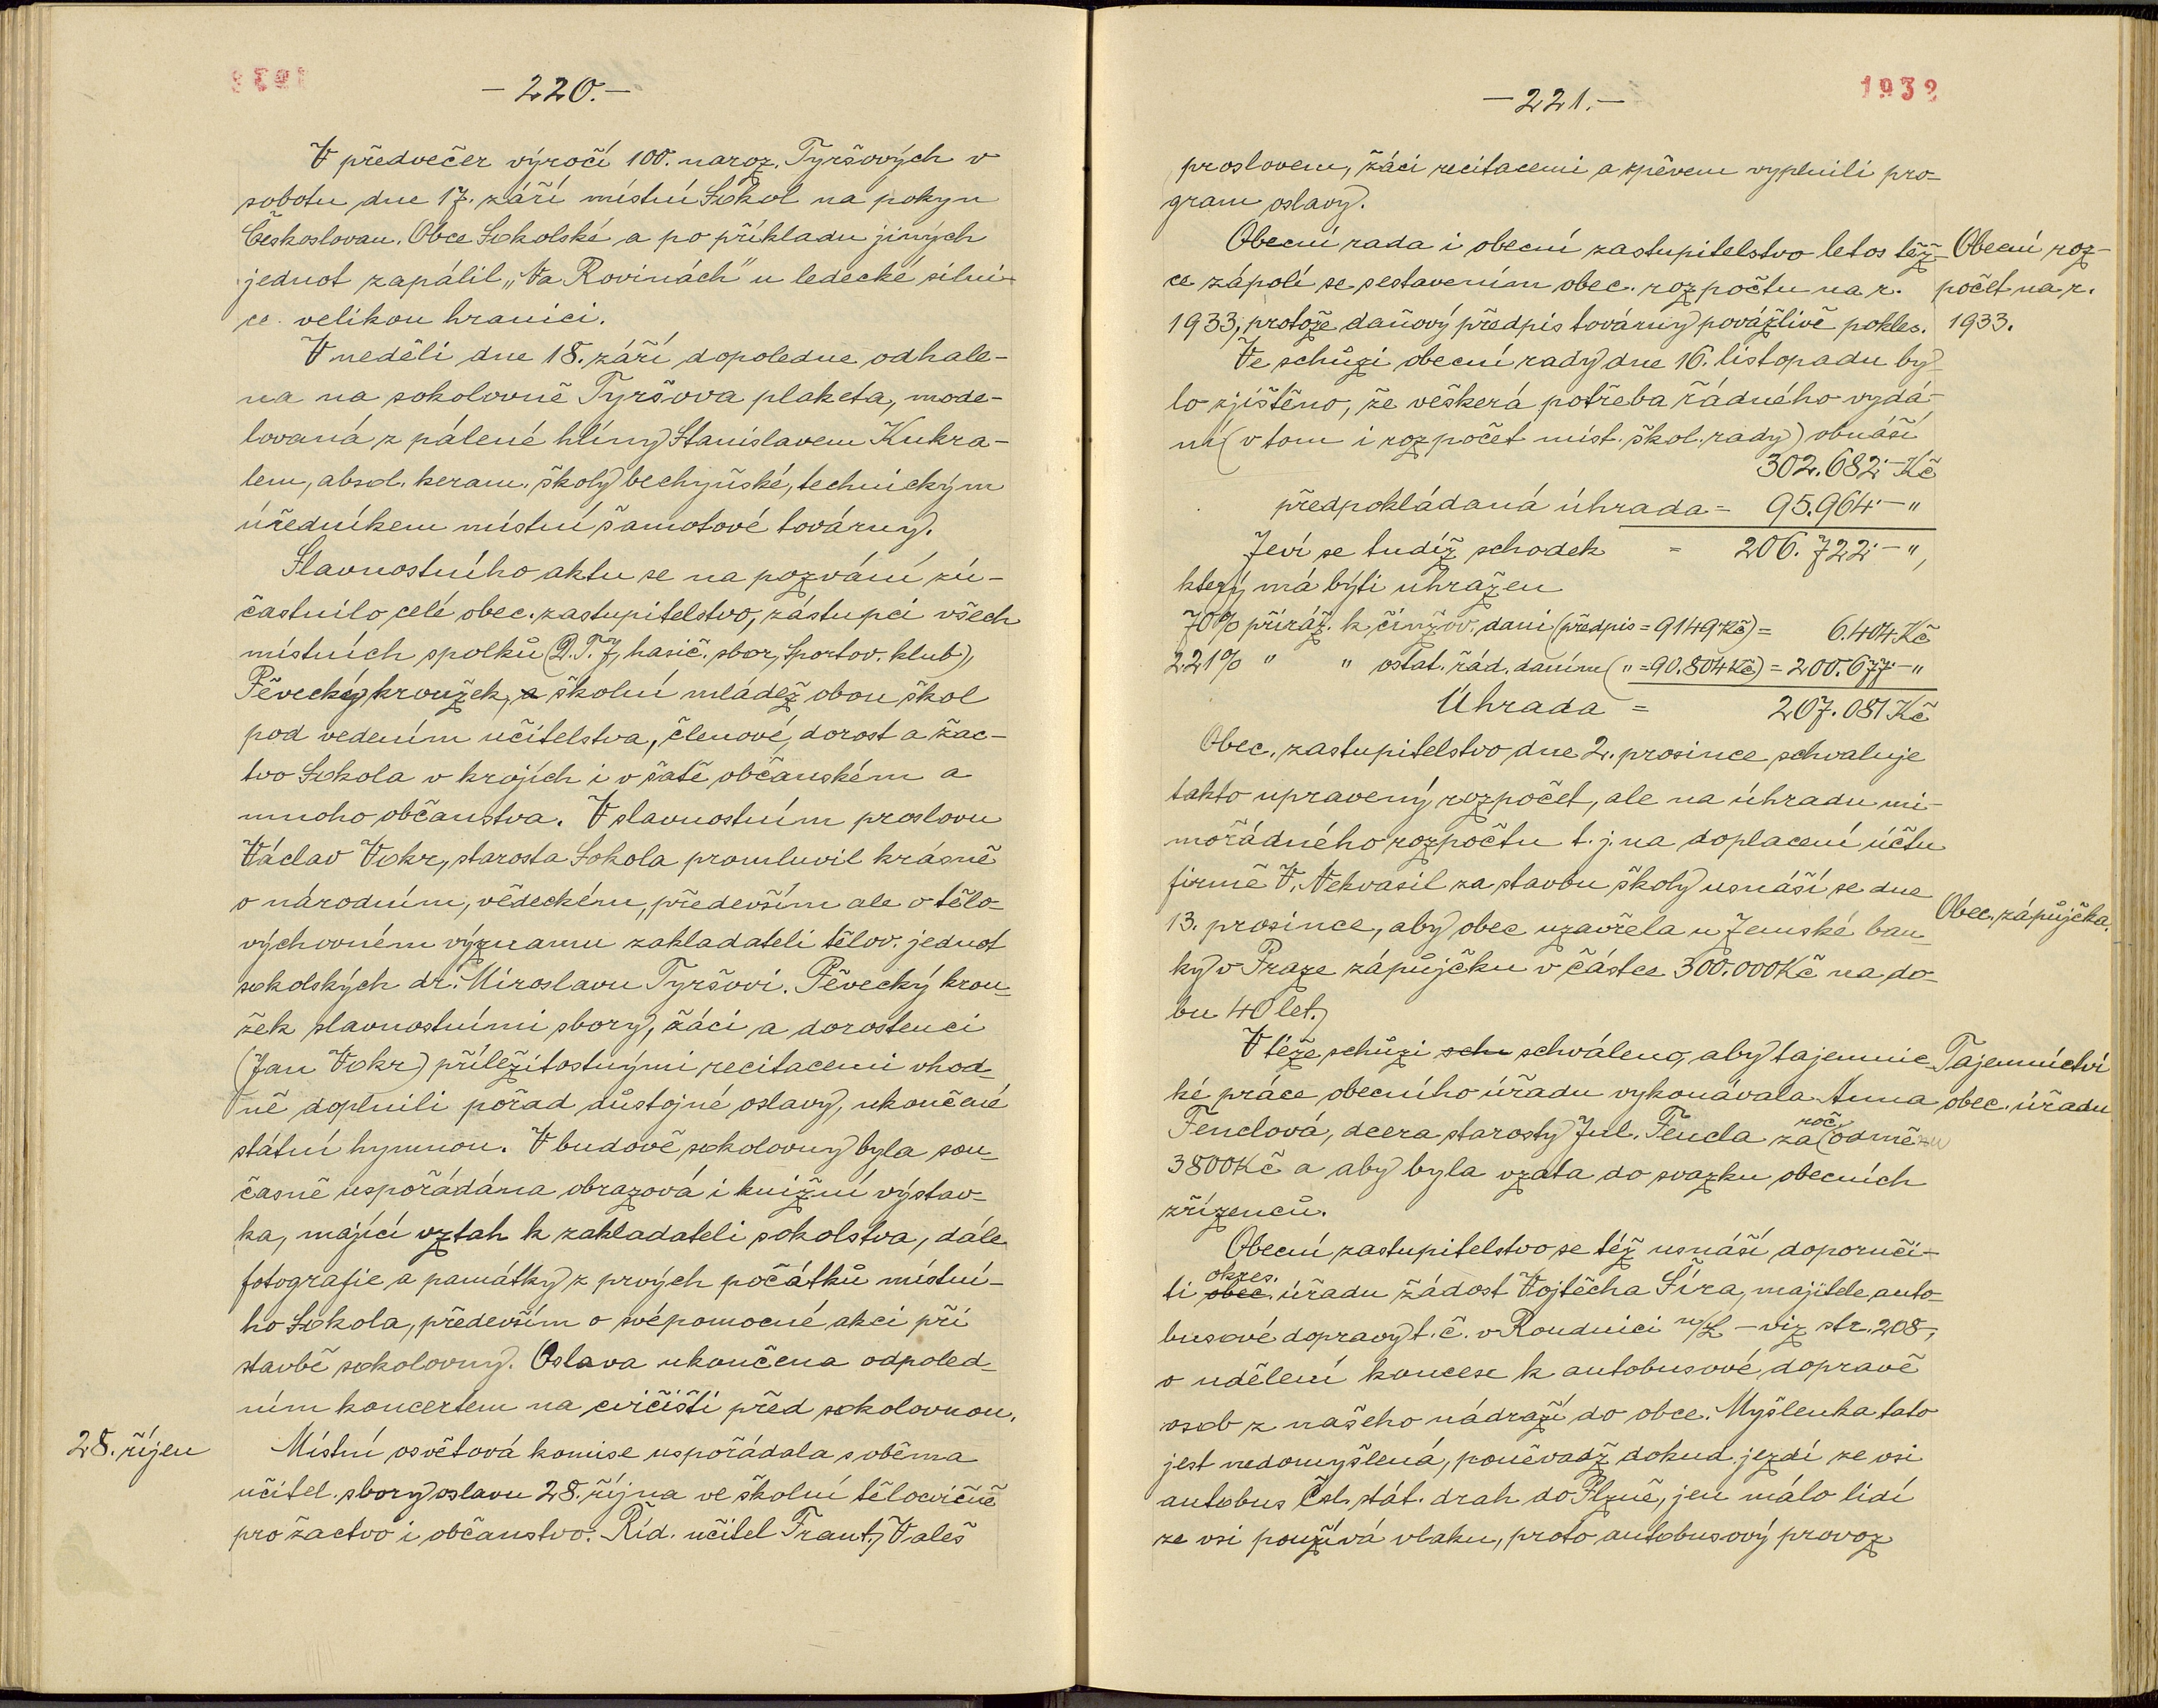 -220.-
V předvečer výročí 100. naroz. Tyršových v
sobotu dne 17. září místní Sokol na pokyn
Českoslovan. Obce Sokolské a po příkladu jiných
jednot zapálil „Na Rovinách" u ledecké silni-
ce velikou hranici.
V neděli dne 18. září dopoledne odhale-
na na sokolovně Tyršova plaketa, mode-
lovaná z pálené hlíny Stanislavem Kukra-
lem, absol. keram. školy bechyňské, technickým
úředníkem místní šamotové továrny.
Slavnostního aktu se na pozvání zú-
častnilo celé obec. zastupitelstvo, zástupci všech
místních spolků (D.T.J, hasič. sbor, Sportov. klub),
Pěvecký kroužek, a školní mládež obou škol
pod vedením učitelstva, členové, dorost a žac-
tvo Sokola v krojích i v šatě občanském a
mnoho občanstva. V slavnostním proslovu
Václav Vokr, starosta Sokola promluvil krásně
o národním, vědeckém, především ale o tělo-
výchovném významu zakladateli tělov. jednot
sokolských dr. Miroslavu Tyršovi. Pěvecký krou-
žek slavnostními sbory, žáci a dorostenci
(Jan Vokr) příležitostnými recitacemi vhod-
ně doplnili pořad důstojné oslavy, ukončené
státní hymnou. V budově sokolovny byla sou-
časně uspořádána obrazová i knižní výstav-
ka, mající vztah k zakladateli sokolstva, dále
fotografie a památky z prvých počátků místní-
ho Sokola, především o svépomocné akci při
stavbě sokolovny. Oslava ukončena odpoled-
ním koncertem na cvičišti před sokolovnou.
28. říjen
Místní osvětová komise uspořádala s oběma
učitel. sbory oslavu 28. října ve školní tělocvičně
pro žactvo i občanstvo. Říd. učitel Frant. Valeš
-221.-
1932
proslovem, žáci recitacemi a zpěvem vyplnili pro-
gram oslavy.
Obecní rada i obecní zastupitelstvo letos těž-
ce zápolí se sestavením obec. rozpočtu na r.
1933, protože daňový předpis továrny povážlivě pokles.
Obecní roz-
počet na r.
1933.
Ve schůzi obecní rady dne 16. listopadu by-
lo zjištěno, že veškerá potřeba řádného vydá-
ní (v tom i rozpočet míst. škol. rady) obnáší
302.682.- Kč
předpokládaná úhrada = 95.964.- "
Jeví se tudíž schodek = 206.722.- ",
který má býti uhražen
70% přiráž. k činžov. dani (předpis = 9149 Kč) = 6.404 Kč
221% " " ostat. řád. daním ( " = 90.804 Kč) = 200.677.- "
Úhrada = 207.081 Kč
Obec. zastupitelstvo dne 2. prosince schvaluje
takto upravený rozpočet, ale na úhradu mi-
mořádného rozpočtu t.j. na doplacení účtu
firmě V. Nekvasil za stavbu školy usnáší se dne
13. prosince, aby obec uzavřela u Zemské ban-
ky v Praze zápůjčku v částce 300.000 Kč na do-
bu 40 let.
Obec. zápůjčka.
V téže schůzi sch schváleno, aby tajemnic-
ké práce obecního úřadu vykonávala Anna
Fenclová, dcera starosty Jul. Fencla za roč. odměnu
3800 Kč a aby byla vzata do svazku obecních
zřízenců.
Tajemnictví
obec. úřadu
Obecní zastupitelstvo se též usnáší doporuči-
okres.
ti obec. úřadu žádost Vojtěcha Šíra, majitele auto-
busové dopravy t. č. v Roudnici n/L - viz str. 208-,
o udělení koncese k autobusové dopravě
osob z našeho nádraží do obce. Myšlenka tato
jest nedomyšlená, poněvadž dokud jezdí ze vsi
autobus Čsl. stát. drah do Plzně, jen málo lidí
ze vsi používá vlaku, proto autobusový provoz